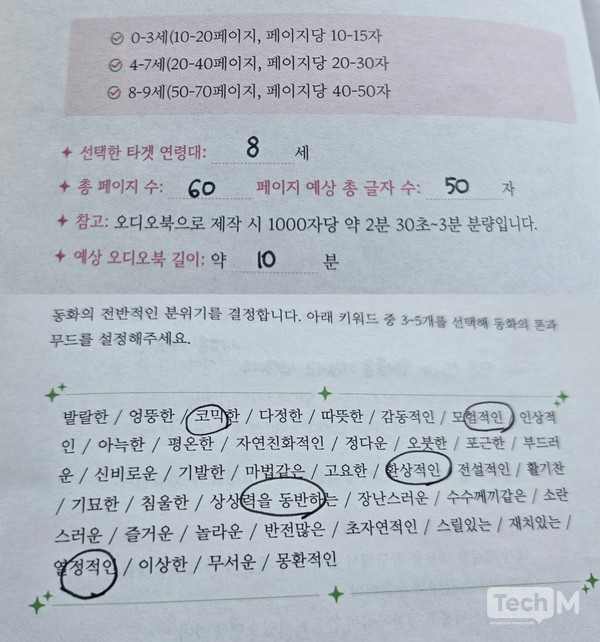 0-3세(10-20페이지, 페이지당 10-15자
4-7세(20-40페이지, 페이지당 20-30자
8-9세(50-70페이지, 페이지당 40-50자
선택한 타겟 연령대: 8 세
총 페이지 수: 60 페이지 예상 총 글자 수: 50 자
참고: 오디오북으로 제작 시 1000자당 약 2분 30초~3분 분량입니다.
예상 오디오북 길이: 약 10 분
동화의 전반적인 분위기를 결정합니다. 아래 키워드 중 3~5개를 선택해 동화의 톤과
무드를 설정해주세요.
발랄한 / 엉뚱한 / 코믹한 / 다정한 / 따뜻한 / 감동적인 / 모험적인 / 인상적
인 / 아늑한 / 평온한 / 자연친화적인 / 정다운 / 오붓한 / 포근한 / 부드러
운 / 신비로운 / 기발한 / 마법같은 / 고요한 / 환상적인 / 전설적인 / 활기찬
/ 기묘한 / 침울한 / 상상력을 동반하는 / 장난스러운 / 수수께끼같은 / 소란
스러운 / 즐거운 / 놀라운 / 반전많은 / 초자연적인 / 스릴있는 / 재치있는 /
열정적인 / 이상한 / 무서운 / 몽환적인
Tech M